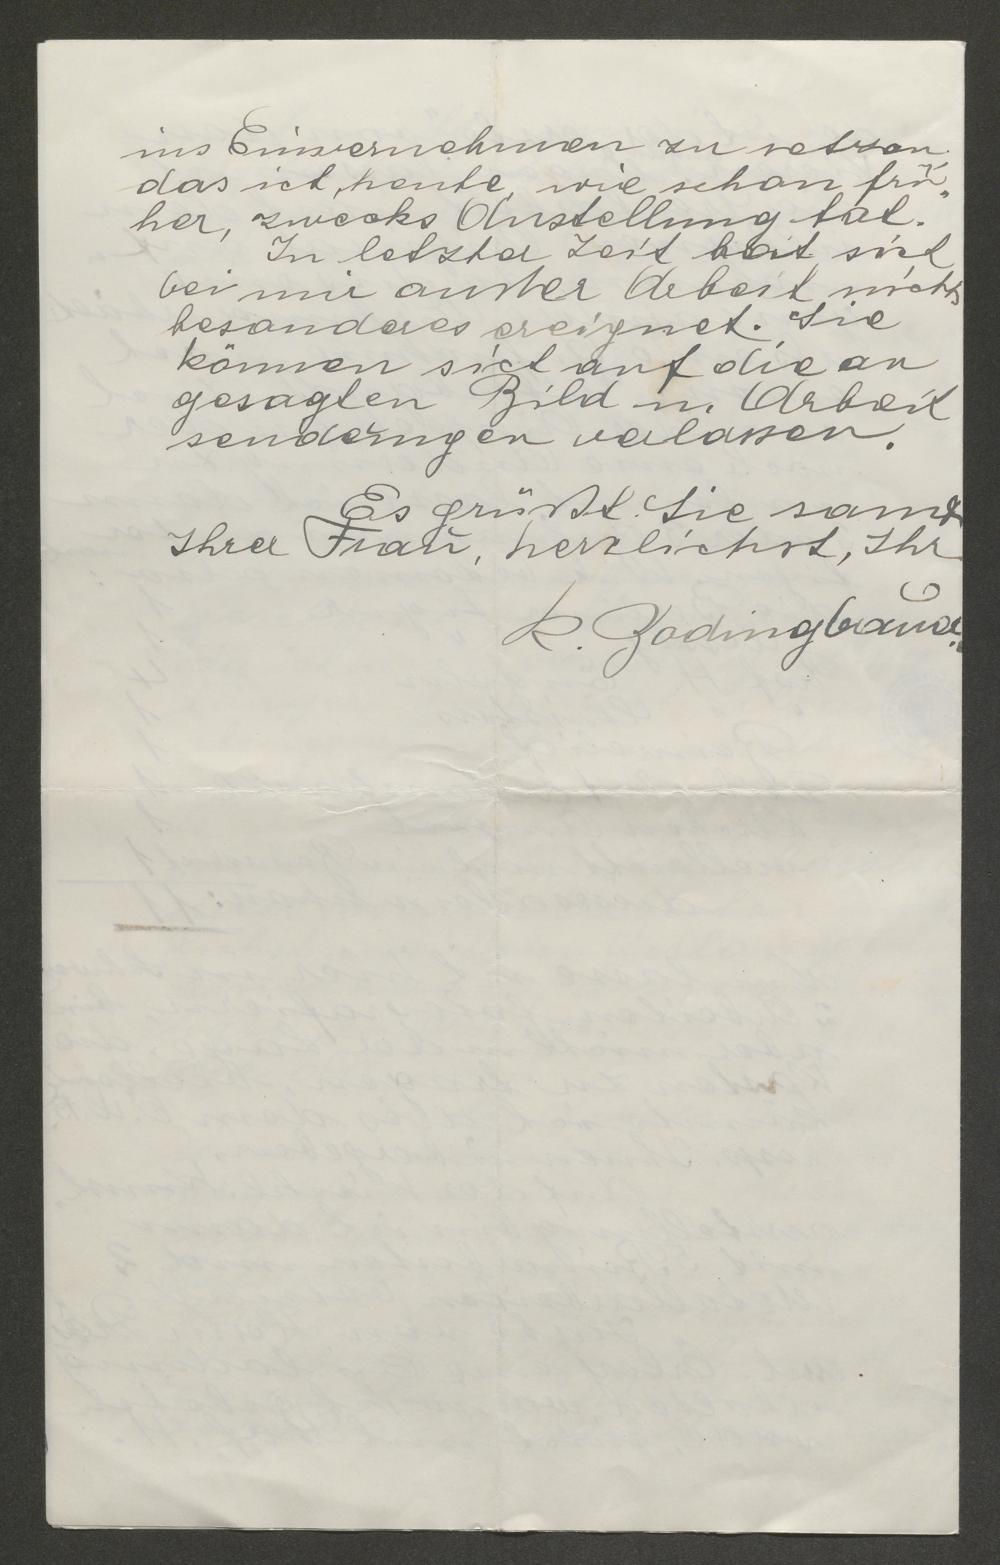 ins Einvernehmen zu setzen.
das ich, heute, wie schon frü-
her, zwecks Anstellung tat."
In letzter Zeit hat sich
bei mir außer Arbeit nichts
besonderes ereignet. Sie
können sich auf die an
gesagten Bild u. Arbeit
senderungen verlassen.
Es grüßt Sie samt
Ihrer Frau, herzlichst, Ihr
K. Zodingbauer.